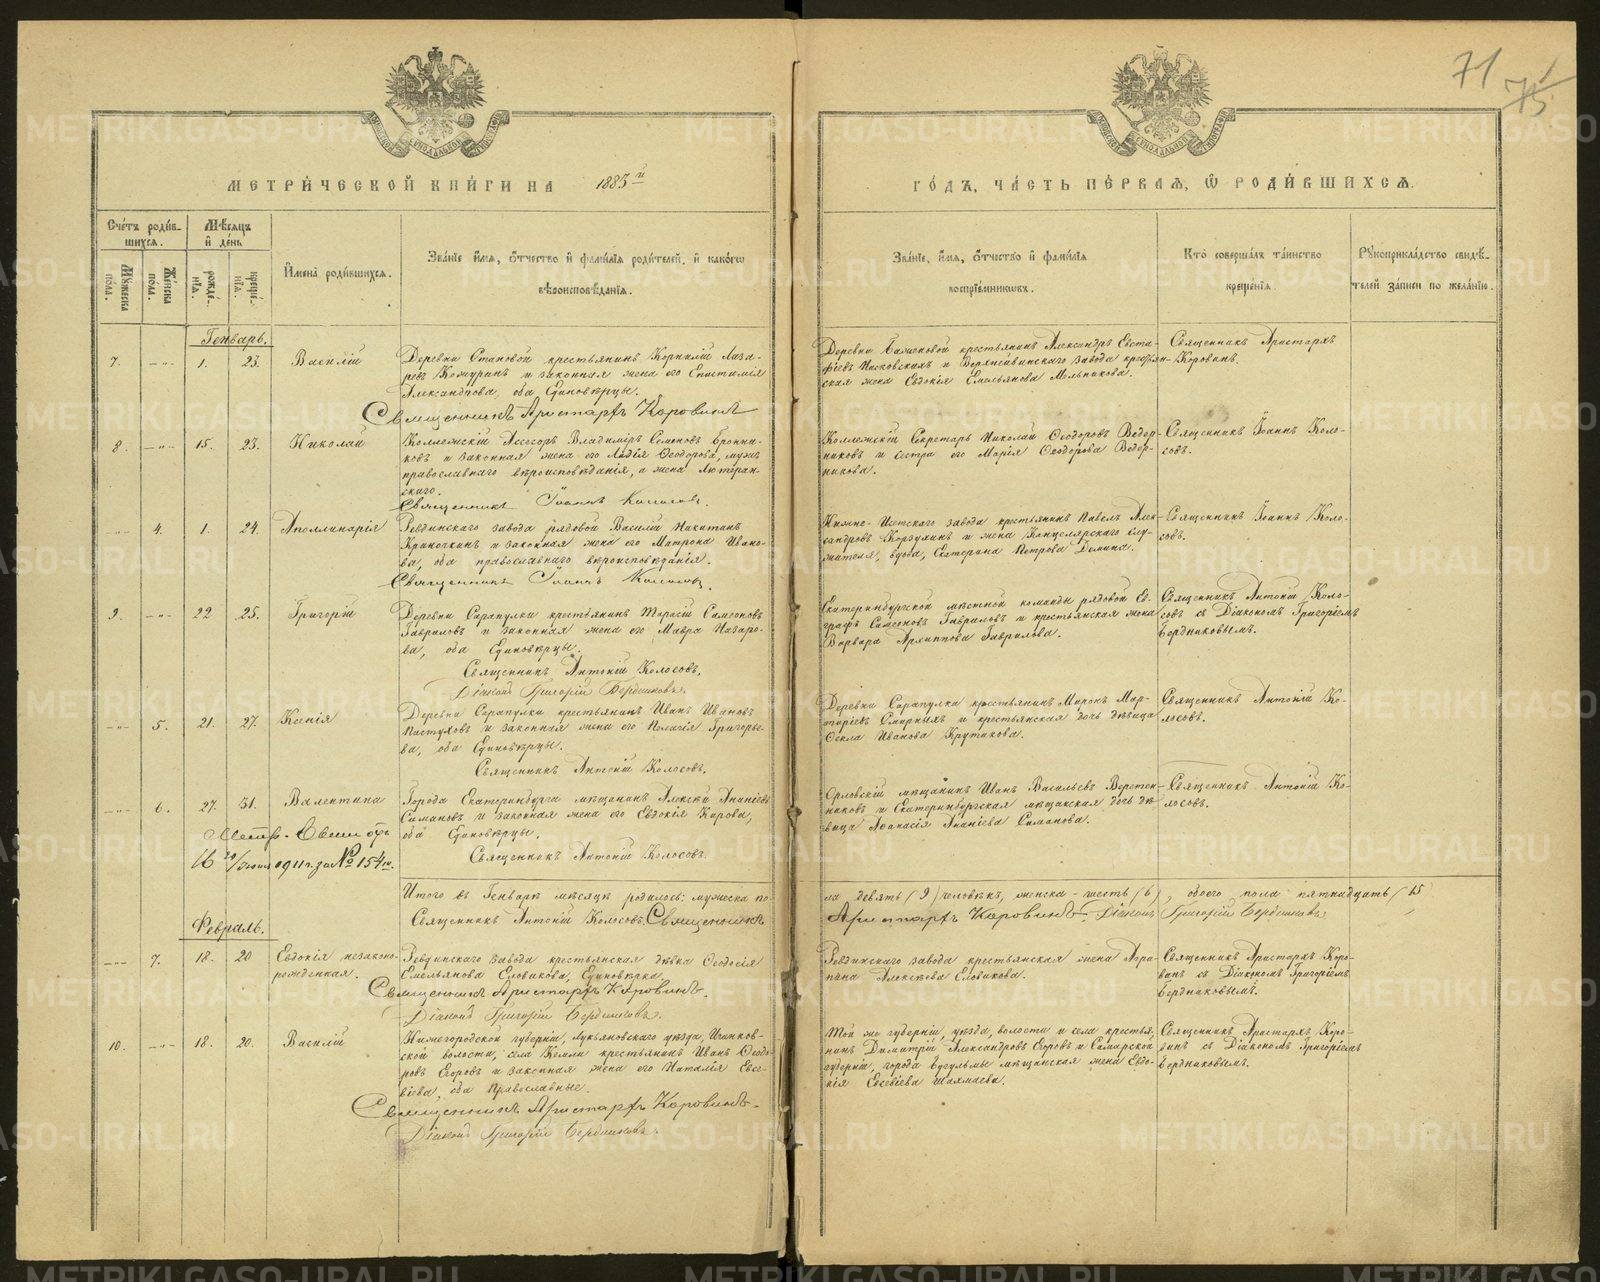 71
75
МЕТРИ́ЧЕСКОЙ КНИ́ГИ НА 1883й
ГО́ДЪ, ЧА́СТЬ ПЕ́РВАЯ, Ѡ РОДИ́ВШИХСЯ.
Сче́тъ роди́вшихся.
Мужеска пола.
Женска пола.
Мѣ́сяцъ и де́нь
рожде́нїя.
креще́нїя.
Имена̀ роди́вшихся.
Зва́нїе и́мя, о́тчество и фами́лїя роди́телей, и како́гѡ
вѣроисповѣ́данїя.
Зва́нїе, и́мя, о́тчество и фами́лїя
воспрїе́мникѡвъ.
Кто̀ соверша́лъ та́инство
креще́нїя
Рукоприкла́дство свидѣ́-
телей за́писи по жела́нїю.
Генварь.
7. -„- 1. 23. Василій
Деревни Становой крестьянинъ Корнилій Лаза-
ревъ Кожуринъ и законная жена его Епистимія
Александрова, оба Единовѣрцы.
Священникъ Аристархъ Коровинъ
Деревни Баженовой крестьянинъ Александръ Евста-
фіевъ Писковскихъ и Верхнейвинского завода крестьян-
ская жена Евдокія Емельянова Мельникова.
Священникъ Аристархъ
Коровинъ.
8. -„- 15. 23. Николай
Коллежскій Ассесоръ Владиміръ Семеновъ Бронни-
ковъ и законная жена его Лидія Ѳеодорова, мужъ
православнаго вѣроисповѣданія, а жена лютеран-
скаго.
Священникъ Іоаннъ Колосовъ.
Коллежскій Секретарь Николай Ѳеодоровъ Ведер-
никовъ и сестра его Марія Ѳеодорова Ведер-
никова.
Священникъ Іоаннъ Коло-
совъ.
-„- 4. 1. 24. Аполлинарія
Ревдинскаго завода рядовой Василій Никитинъ
Криночкинъ и законная жена его Матрона Ивано-
ва, оба православнаго вѣроисповѣданія.
Священникъ Іоаннъ Колосовъ
Нижне-Исетскаго завода крестьянинъ Павелъ Алек-
сандровъ Корзухинъ и жена Канцелярскаго слу-
жителя, вдова, Екатерина Петрова Демина.
Священникъ Іоаннъ Коло-
совъ.
9. -„- 22 25. Григорій
Деревни Сарапулки крестьянинъ Тарасій Самсоновъ
Гавриловъ и законная жена его Мавра Назаро-
ва, оба Единовѣрцы.
Священникъ Антоній Колосовъ.
Діаконъ Григорій Бердниковъ.
Екатеринбургской мѣстной команды рядовой Ев-
графъ Самсоновъ Гавриловъ и крестьянская жена
Варвара Архиппова Гаврилова.
Священникъ Антоній Коло-
совъ съ Діакономъ Григоріемъ
Бердниковымъ.
-„- 5. 21. 27. Ксенія
Деревни Сарапулки крестьянинъ Иванъ Ивановъ
Пастуховъ и законная жена его Пелагія Григорье-
ва, оба Единовѣрцы.
Священникъ Антоній Колосовъ.
Деревни Сарапулки крестьянинъ Миронъ Мар-
Смирныхъ и крестьянская дочь дѣвица
Ѳекла Иванова Крутикова.
Священникъ Антоній Ко-
лосовъ.
-„- 6. 27. 31. Валентина
Города Екатеринбурга мѣщанинъ Алексѣй Ананіевъ
Симановъ и законная жена его Евдокія Карова,
оба Единовѣрцы.
Священникъ Антоній Колосовъ.
Орловскій мѣщанинъ Иванъ Васильевъ Веретен-
никовъ и Екатеринбургская мѣщанская дочь дѣ-
вица Аѳанасія Ананіева Симанова.
Священникъ Антоній Ко-
лосовъ.
Метр.
1911 г. за № 154
Итого въ Генварѣ мѣсяцѣ родилось: мужеска по-
ла девять (9) человѣкъ, женска - шесть (6), обоего пола пятнадцать (15)
Священникъ Антоній Колосовъ. Священникъ
Аристархъ Коровинъ. Діаконъ Григорій Бердниковъ.
Февраль.
-„- 7. 18. 20 Евдокія незаконо-
рожденная.
Ревдинскаго завода крестьянская дѣвка Ѳеодосія
Емельянова Словикова, Единовѣрка.
Священникъ Аристархъ Коровинъ.
Діаконъ Григорій Бердниковъ.
Ревдинскаго завода крестьянская жена
Алексѣева Словикова.
Священникъ Аристархъ Коро-
винъ съ Діакономъ Григоріемъ
Бердниковымъ.
10. -„- 18. 20. Василій
Нижегородской губерніи, Лукьяновскаго уѣзда,
ской волости, села Кемли крестьянинъ Иванъ Ѳеодо-
ровъ Егоровъ и законная жена его Наталія Евсе-
віева, оба Православные.
Священникъ Аристархъ Коровинъ.
Діаконъ Григорій Бердниковъ.
Той же губерніи, уѣзда, волости и села крестья-
нинъ Димитрій Александровъ Егоровъ и Самарской
губерніи, города Бугульмы мѣщанская жена Евдо-
кія Евсевіева Шахмаева.
Священникъ Аристархъ Коро-
винъ съ Діакономъ Григоріемъ
Бердниковымъ.
METRIKI.GASO-URAL.RU